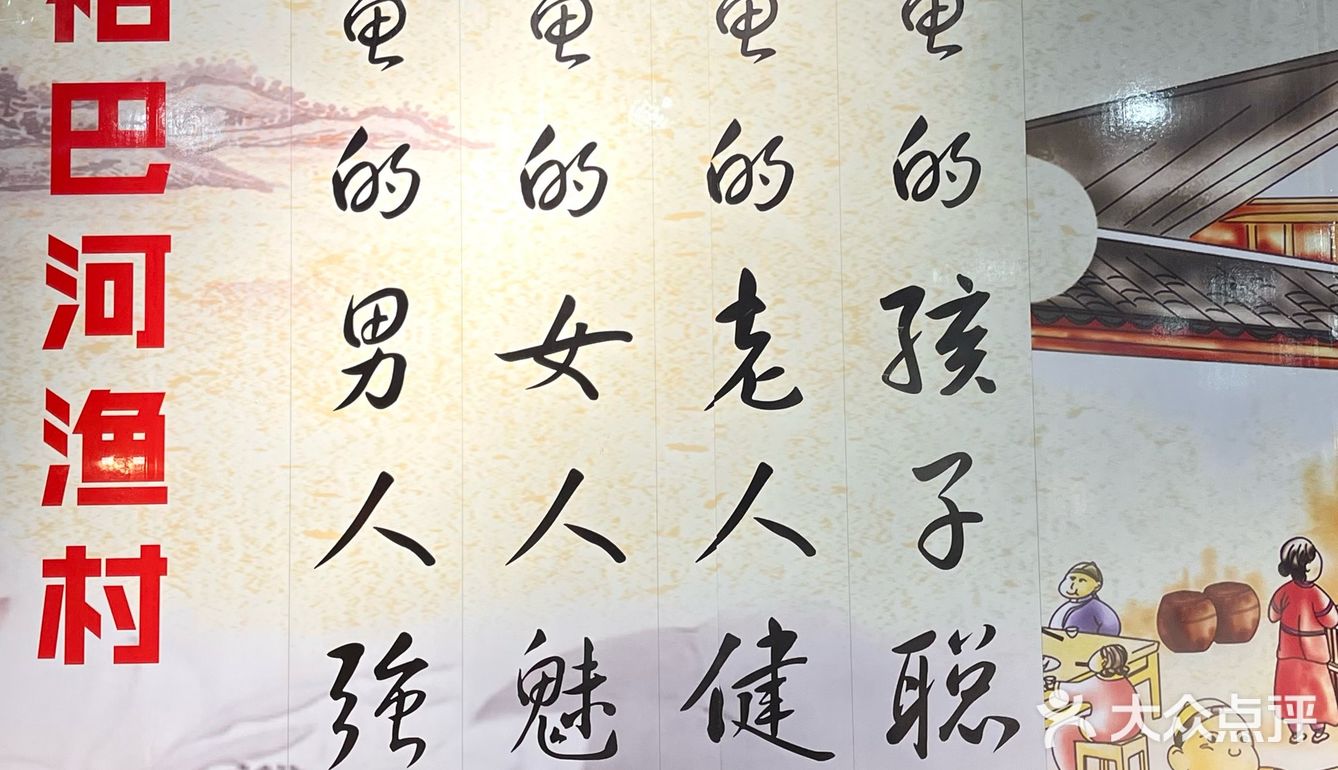 巴河渔村
的男人強
的女人魅
的老人健
的孩子聪
大众点评